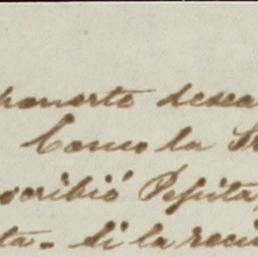 honorto desea
Como la Sr
scribió Pepita,
ta- si la reci